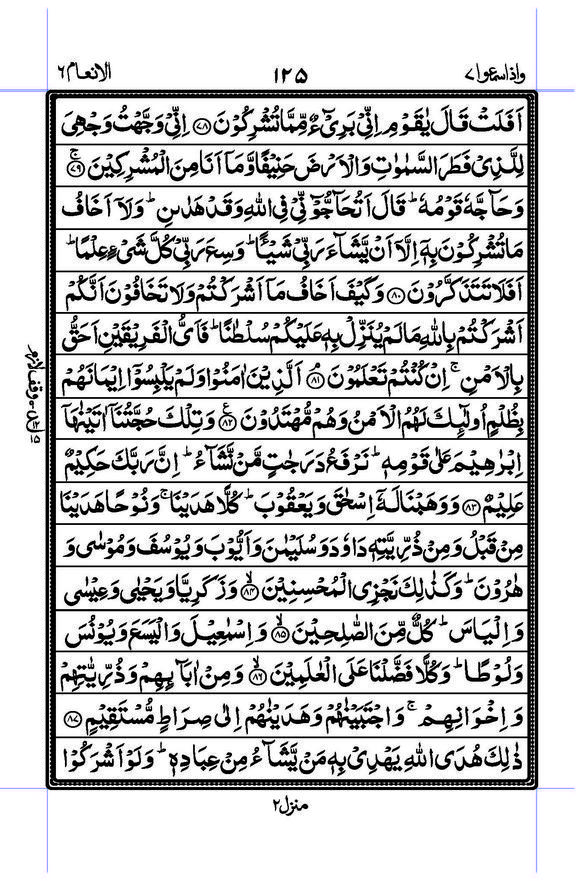 واذاسمعوا۷
۱۲۵
الانعام۶
اَفَلَتْ قَالَ یٰقَوْمِ اِنِّیْ بَرِیْٓءٌ مِّمَّا تُشْرِكُوْنَ ﴿۷۸﴾ اِنِّیْ وَجَّهْتُ وَجْهِیَ
لِلَّذِیْ فَطَرَ السَّمٰوٰتِ وَالْاَرْضَ حَنِیْفًا وَّمَاۤ اَنَا مِنَ الْمُشْرِكِیْنَ ۚ﴿۷۹﴾
وَحَآجَّهٗ قَوْمُهٗ ؕ قَالَ اَتُحَآجُّوْٓنِّیْ فِی اللّٰهِ وَقَدْ هَدٰىنِ ؕ وَلَاۤ اَخَافُ
مَا تُشْرِكُوْنَ بِهٖۤ اِلَّاۤ اَنْ یَّشَآءَ رَبِّیْ شَیْـًٔا ؕ وَسِعَ رَبِّیْ كُلَّ شَیْءٍ عِلْمًا ؕ
اَفَلَا تَتَذَكَّرُوْنَ ﴿۸۰﴾ وَكَیْفَ اَخَافُ مَاۤ اَشْرَكْتُمْ وَلَا تَخَافُوْنَ اَنَّكُمْ
اَشْرَكْتُمْ بِاللّٰهِ مَا لَمْ یُنَزِّلْ بِهٖ عَلَیْكُمْ سُلْطٰنًا ؕ فَاَیُّ الْفَرِیْقَیْنِ اَحَقُّ
بِالْاَمْنِ ۚ اِنْ كُنْتُمْ تَعْلَمُوْنَ ۘ﴿۸۱﴾ اَلَّذِیْنَ اٰمَنُوْا وَلَمْ یَلْبِسُوْۤا اِیْمَانَهُمْ
بِظُلْمٍ اُولٰٓئِكَ لَهُمُ الْاَمْنُ وَهُمْ مُّهْتَدُوْنَ ﴿۸۲﴾ وَتِلْكَ حُجَّتُنَاۤ اٰتَیْنٰهَاۤ
اِبْرٰهِیْمَ عَلٰی قَوْمِهٖ ؕ نَرْفَعُ دَرَجٰتٍ مَّنْ نَّشَآءُ ؕ اِنَّ رَبَّكَ حَكِیْمٌ
عَلِیْمٌ ﴿۸۳﴾ وَوَهَبْنَا لَهٗۤ اِسْحٰقَ وَیَعْقُوْبَ ؕ كُلًّا هَدَیْنَا ۚ وَنُوْحًا هَدَیْنَا
مِنْ قَبْلُ وَمِنْ ذُرِّیَّتِهٖ دَاوٗدَ وَسُلَیْمٰنَ وَاَیُّوْبَ وَیُوْسُفَ وَمُوْسٰی وَ
هٰرُوْنَ ؕ وَكَذٰلِكَ نَجْزِی الْمُحْسِنِیْنَ ۙ﴿۸۴﴾ وَزَكَرِیَّا وَیَحْیٰی وَعِیْسٰی
وَاِلْیَاسَ ؕ كُلٌّ مِّنَ الصّٰلِحِیْنَ ۙ﴿۸۵﴾ وَاِسْمٰعِیْلَ وَالْیَسَعَ وَیُوْنُسَ
وَلُوْطًا ؕ وَكُلًّا فَضَّلْنَا عَلَی الْعٰلَمِیْنَ ۙ﴿۸۶﴾ وَمِنْ اٰبَآئِهِمْ وَذُرِّیّٰتِهِمْ
وَاِخْوَانِهِمْ ۚ وَاجْتَبَیْنٰهُمْ وَهَدَیْنٰهُمْ اِلٰی صِرَاطٍ مُّسْتَقِیْمٍ ﴿۸۷﴾
ذٰلِكَ هُدَی اللّٰهِ یَهْدِیْ بِهٖ مَنْ یَّشَآءُ مِنْ عِبَادِهٖ ؕ وَلَوْ اَشْرَكُوْا
منزل۲